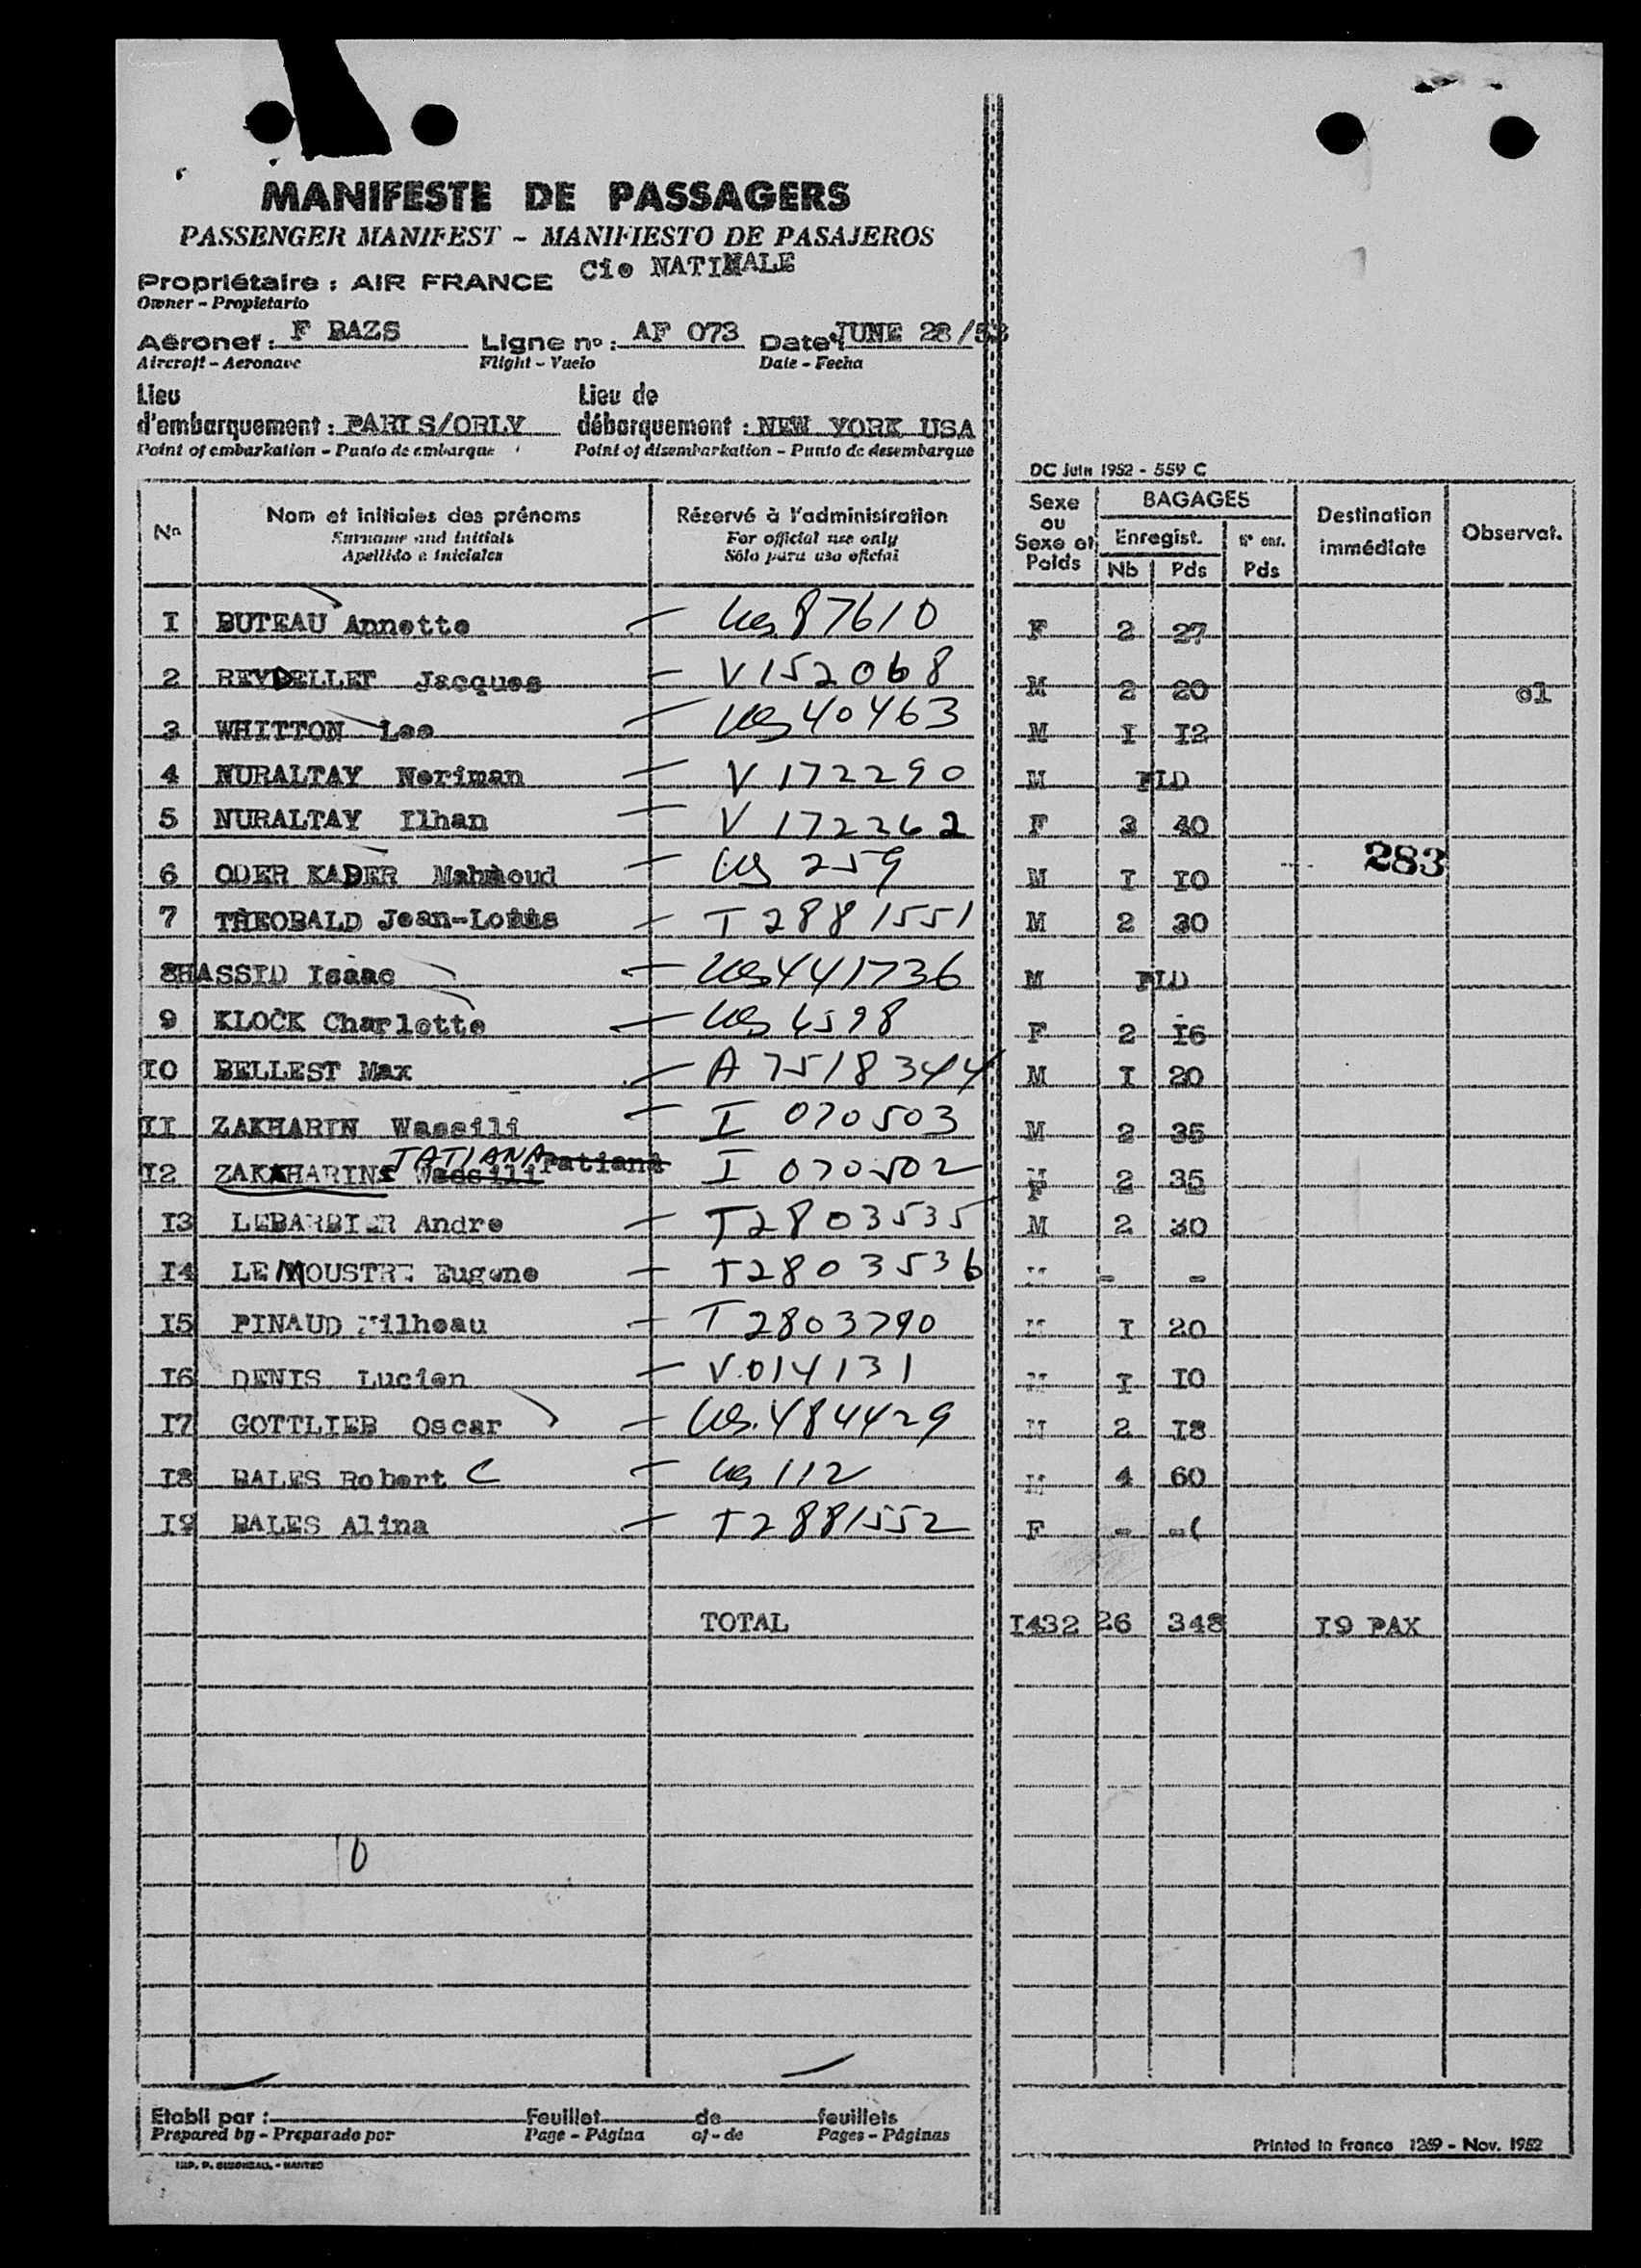 MANIFESTE DE PASSAGERS
PASSENGER MANIFEST - MANIFIESTO DE PASAJEROS
Propriétaire : AIR FRANCE Cie NATIMALE
Owner - Propietario
Aéronef : F BAZS Ligne no : AF 073 Date JUNE 28/53
Aircraft - Aeronave Flight - Vuelo Date - Fecha
Lieu Lieu de
d'embarquement : PARIS/ORLY débarquement : NEW YORK USA
Point of embarkation - Punto de embarque Point of disembarkation - Punto de desembarque
DC Juin 1952 - 559 C
No Nom et initiales des prénoms Réservé à l'administration Sexe ou Sexe et Poids BAGAGES Destination immédiate Observat.
Surname and initials For official use only Enregist. No enr.
Apellido e iniciales Sólo para uso oficial Nb Pds Pds
I BUTEAU Annette - US 87610 F 2 27
2 REYDELLET Jacques - V 152068 M 2 20 cl
3 WHITTON Lee - US 40463 M I I2
4 NURALTAY Neriman - V 172290 M PLD
5 NURALTAY Ilhan - V 172262 F 3 40
283
6 ODER KADER Mahmoud - US 259 M I IO
7 THEOBALD Jean-Louis - T 2881551 M 2 30
8 HASSID Isaac - US 441736 M PLD
9 KLOCK Charlotte - US 4598 F 2 I6
IO BELLEST Max - A 7518344 M I 20
II ZAKHARIN Wassili - I 070503 M 2 35
I2 ZAKHARINE Wassili TATIANA Tatiana I 070502 F 2 35
I3 LEBARBIER Andre - T2803535 M 2 30
I4 LE MOUSTRE Eugene - T2803536 M - -
I5 PINAUD Milheau - T 2803790 M I 20
I6 DENIS Lucien - V.014131 M I IO
I7 GOTTLIEB Oscar - US.484429 M 2 I8
I8 BALES Robert C - US 112 M 4 60
I9 BALES Alina - T2881552 F - -(
TOTAL I432 26 348 I9 PAX
Etabli par : Feuillet de feuillets
Prepared by - Preparado por Page - Página of - de Pages - Páginas
Printed in France 1269 - Nov. 1952